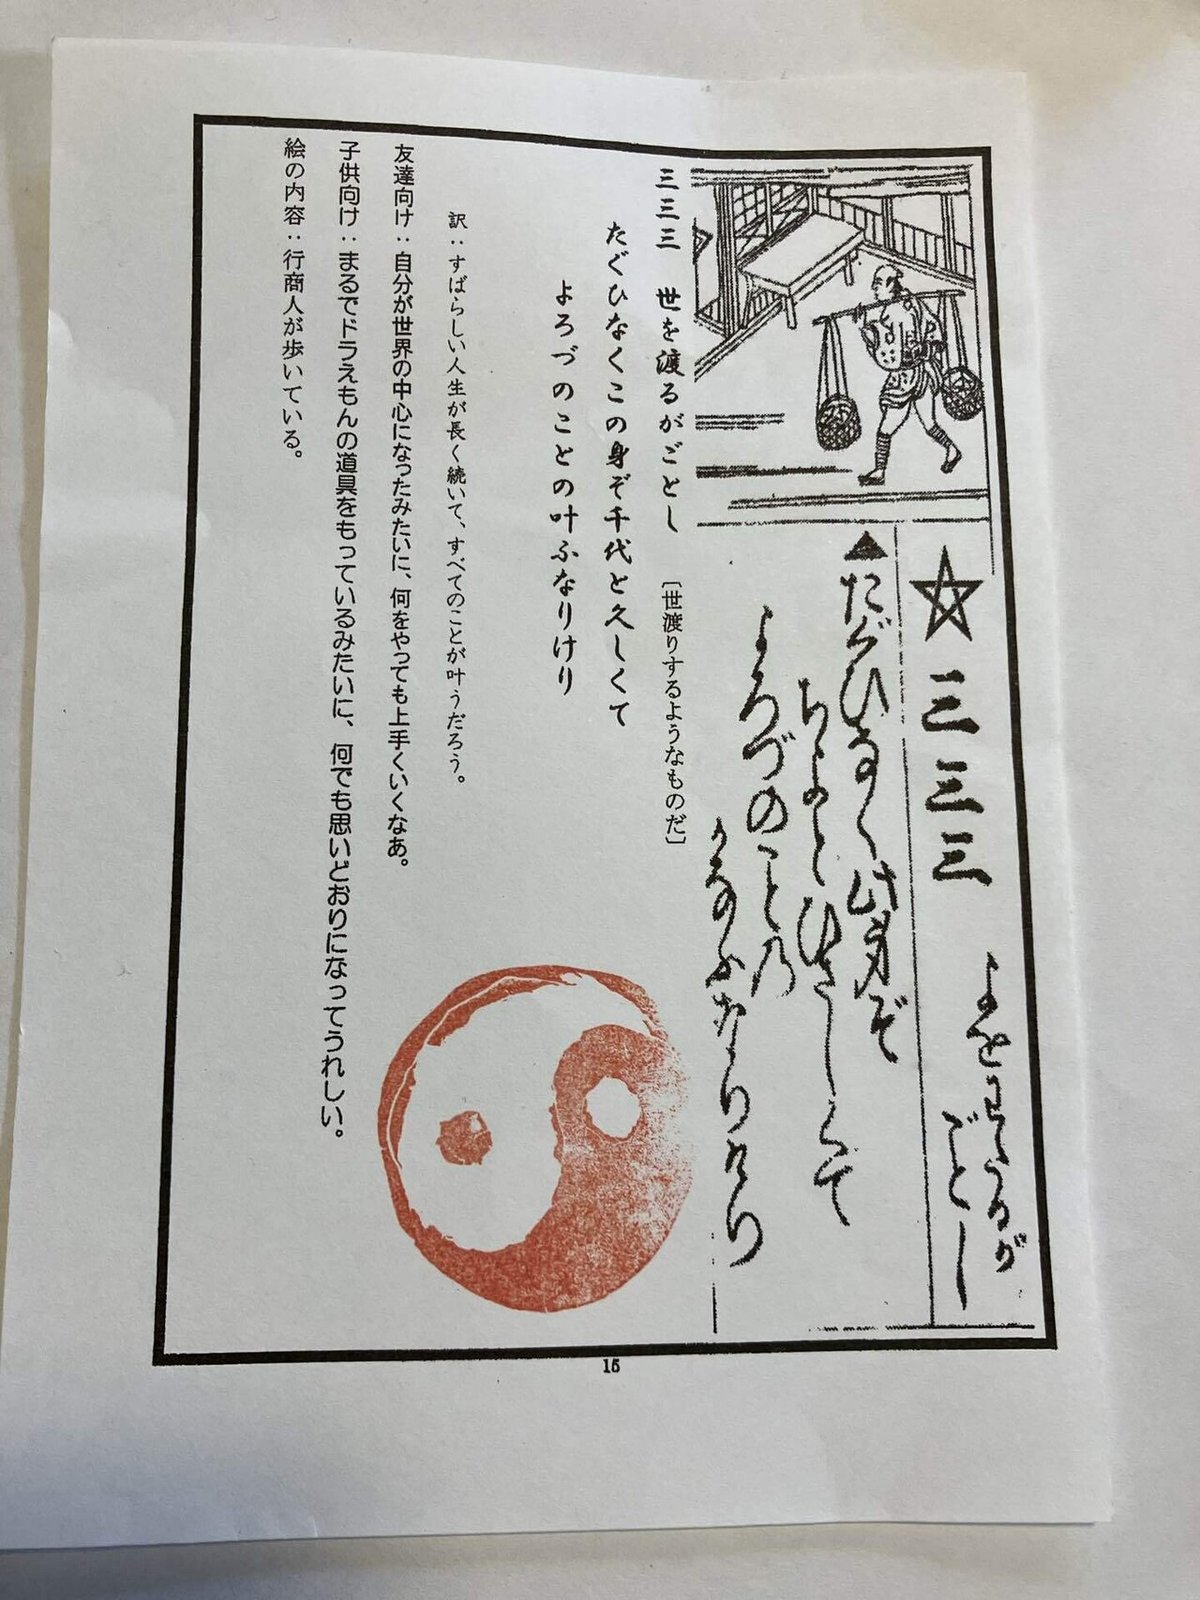 三三三
よをわたるが
ごとし
▲たぐひなく此身ぞ
ちよとひさしくて
よろづのこと乃
かなふなりけり
三三三 世を渡るがごとし [世渡りするようなものだ]
たぐひなくこの身ぞ千代と久しくて
よろづのことの叶ふなりけり
訳：すばらしい人生が長く続いて、すべてのことが叶うだろう。
友達向け：自分が世界の中心になったみたいに、何をやっても上手くいくなあ。
子供向け：まるでドラえもんの道具をもっているみたいに、何でも思いどおりになってうれしい。
絵の内容：行商人が歩いている。
15